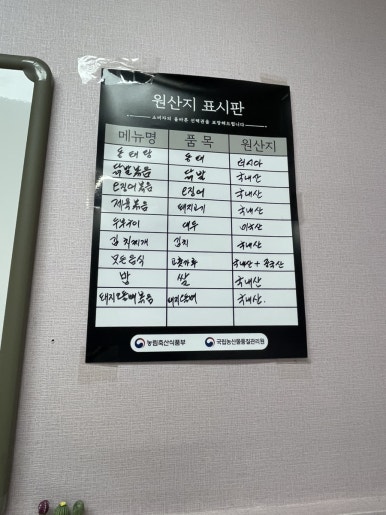 원산지 표시판
소비자의 올바른 선택권을 보장해드립니다
메뉴명 품 목 원산지
동태탕 동태 러시아
닭발볶음 닭발 국내산
오징어볶음 오징어 국내산
제육볶음 돼지고기 국내산
두부구이 대두 미국산
김치찌개 김치 국내산
모든음식 고춧가루 국내산 + 중국산
밥 쌀 국내산
돼지 볶음 국내산.
농림축산식품부 국립농산물품질관리원